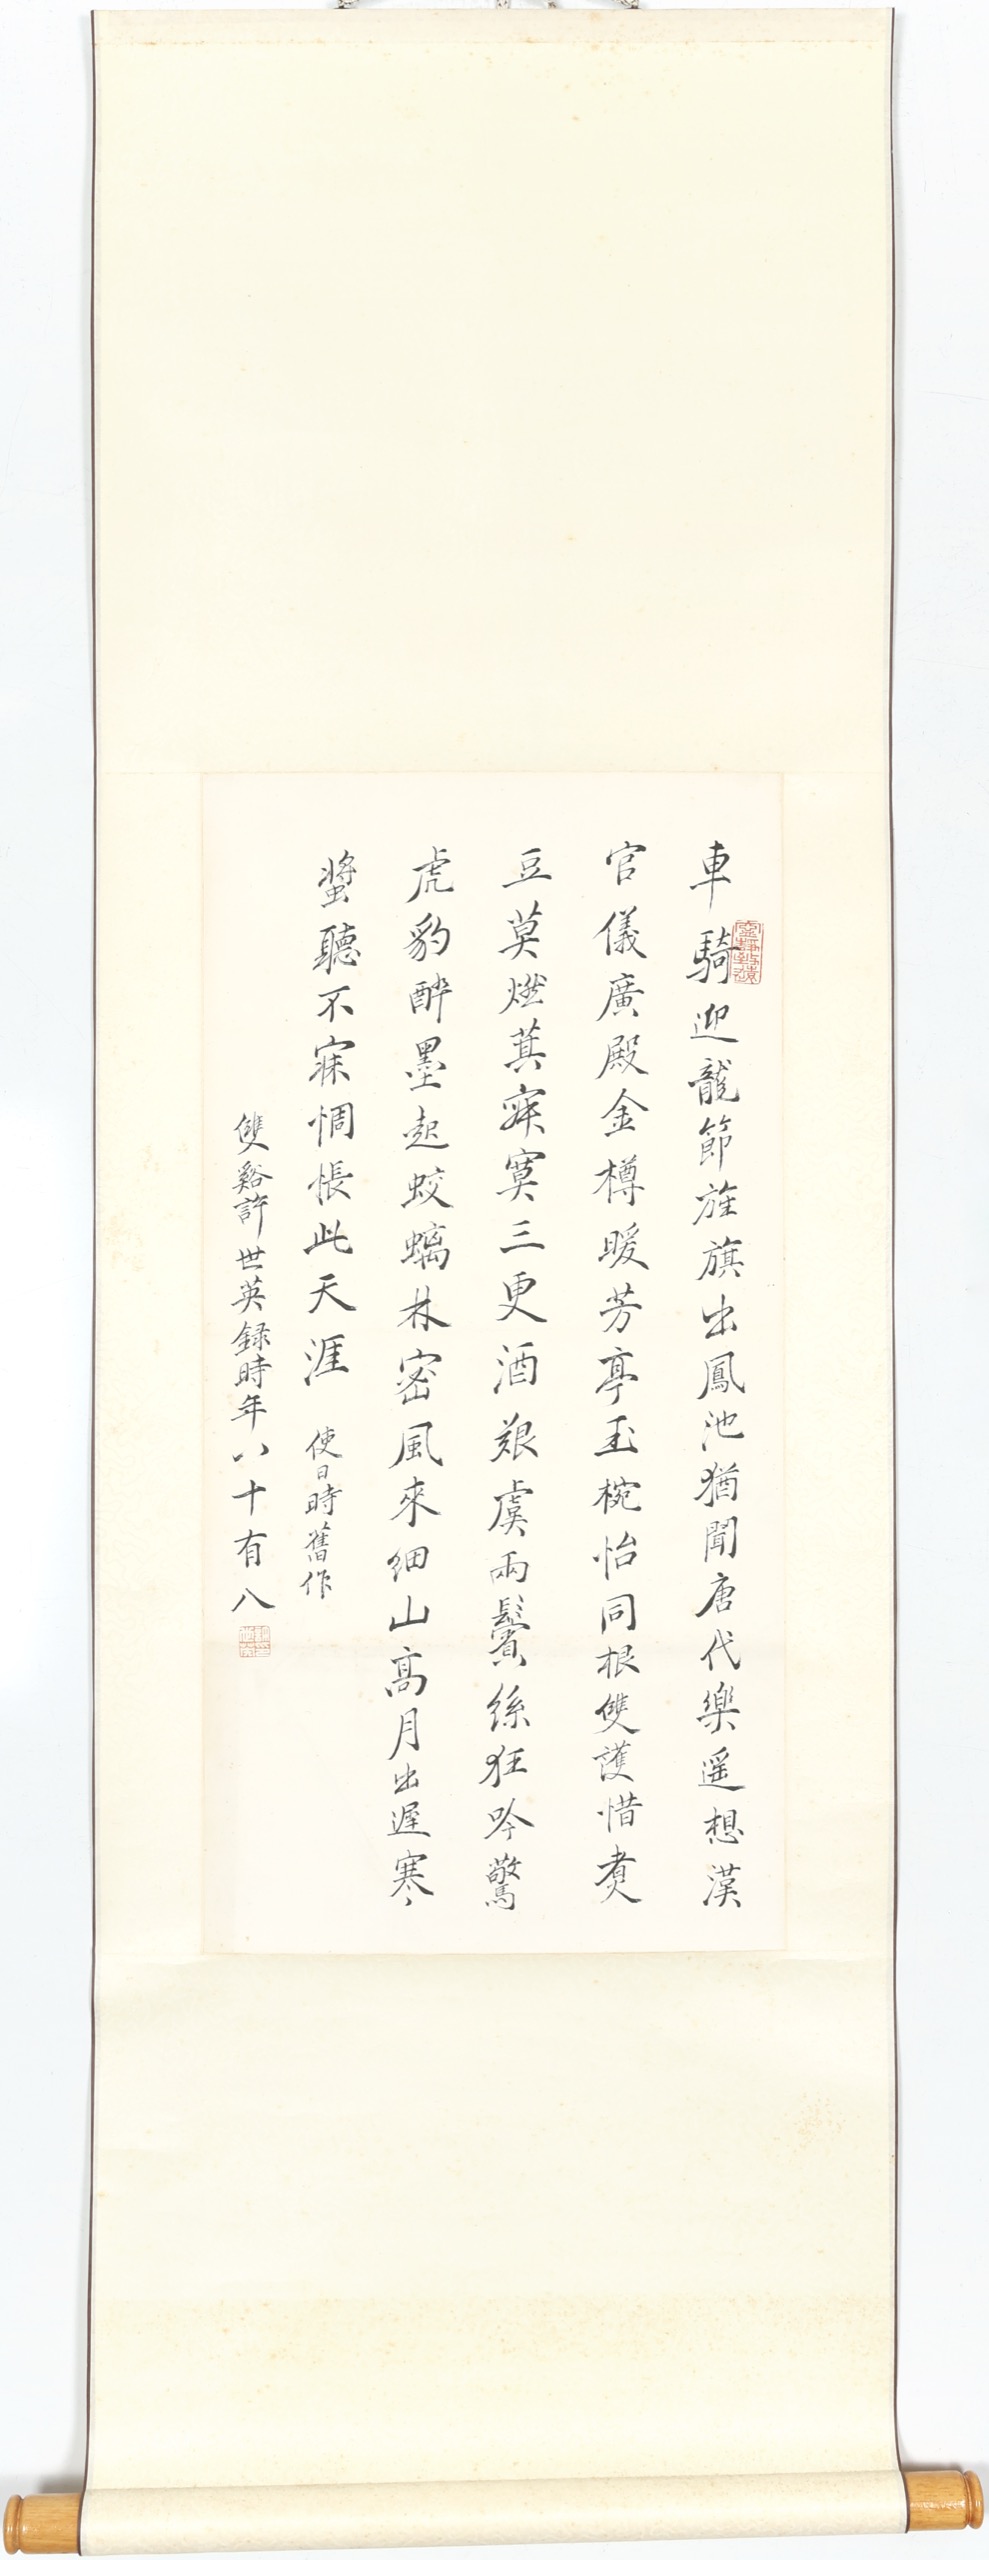 車騎迎龍節旌旗出鳳池猶聞唐代樂遥想漢
官儀廣殿金樽暖芳亭玉椀怡同根雙護惜煑
豆莫燃萁寂寞三更酒艱虞兩鬢絲狂吟驚
虎豹醉墨起蛟螭林密風來細山高月出遲寒
螿聽不寐惆悵此天涯 使日時舊作
雙谿許世英録時年八十有八